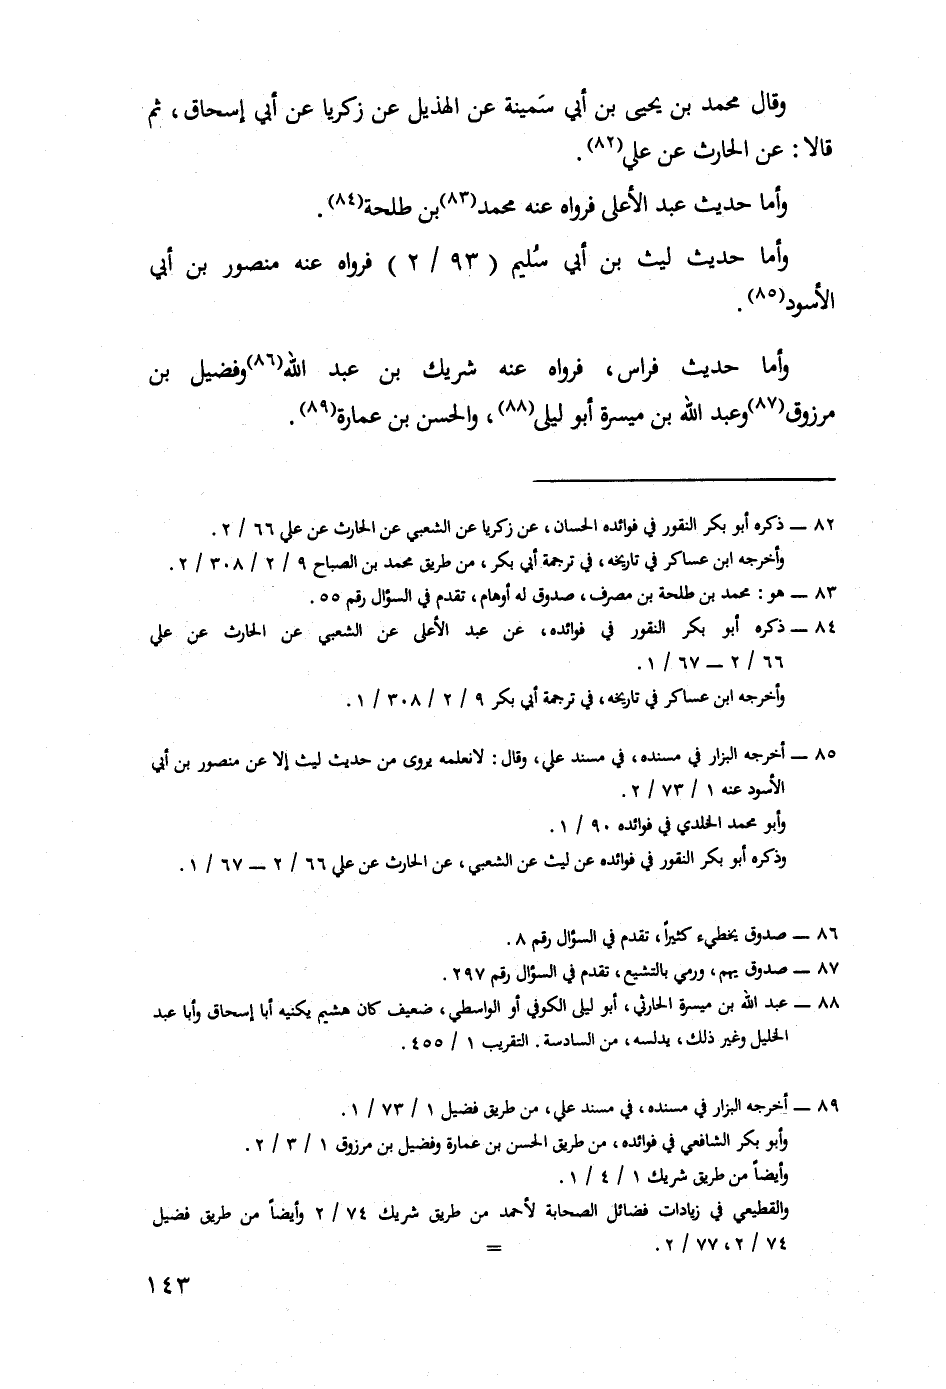 وقال محمد بن يحيى بن أبي سَمينة عن الهذيل عن زكريا عن أبي إسحاق، ثم
قالا: عن الحارث عن علي(٨٢).
وأما حديث عبد الأعلى فرواه عنه محمد(٨٣)بن طلحة(٨٤).
وأما حديث ليث بن أبي سُليم ( ٩٣ / ٢ ) فرواه عنه منصور بن أبي
الأسود(٨٥).
وأما حديث فراس، فرواه عنه شريك بن عبد الله(٨٦)وفضيل بن
مرزوق(٨٧)وعبد الله بن ميسرة أبو ليلى(٨٨)، والحسن بن عمارة(٨٩).
٨٢ ــ ذكره أبو بكر النقور في فوائده الحسان، عن زكريا عن الشعبي عن الحارث عن علي ٦٦ / ٢.
وأخرجه ابن عساكر في تاريخه، في ترجمة أبي بكر، من طريق محمد بن الصباح ٩ / ٢ / ٣٠٨ / ٢.
٨٣ ــ هو: محمد بن طلحة بن مصرف، صدوق له أوهام، تقدم في السؤال رقم ٥٥.
٨٤ ــ ذكره أبو بكر النقور في فوائده، عن عبد الأعلى عن الشعبي عن الحارث عن علي
٦٦ / ٢ ــ ٦٧ / ١.
وأخرجه ابن عساكر في تاريخه، في ترجمة أبي بكر ٩ / ٢ / ٣٠٨ / ١.
٨٥ ــ أخرجه البزار في مسنده، في مسند علي، وقال: لانعلمه يروى من حديث ليث إلا عن منصور بن أبي
الأسود عنه ١ / ٧٣ / ٢.
وأبو محمد الخلدي في فوائده ٩٠ / ١.
وذكره أبو بكر النقور في فوائده عن ليث عن الشعبي، عن الحارث عن علي ٦٦ / ٢ ــ ٦٧ / ١.
٨٦ ــ صدوق يخطيء كثيراً، تقدم في السؤال رقم ٨.
٨٧ ــ صدوق يهم، ورمي بالتشيع، تقدم في السؤال رقم ٢٩٧.
٨٨ ــ عبد الله بن ميسرة الحارثي، أبو ليلى الكوفي أو الواسطي، ضعيف كان هشيم يكنيه أبا إسحاق وأبا عبد
الخليل وغير ذلك، يدلسه، من السادسة. التقريب ١ / ٤٥٥.
٨٩ ــ أخرجه البزار في مسنده، في مسند علي، من طريق فضيل ١ / ٧٣ / ١.
وأبو بكر الشافعي في فوائده، من طريق الحسن بن عمارة وفضيل بن مرزوق ١ / ٣ / ٢.
وأيضاً من طريق شريك ١ / ٤ / ١.
والقطيعي في زيادات فضائل الصحابة لأحمد من طريق شريك ٧٤ / ٢ وأيضاً من طريق فضيل
٧٤ / ٢، ٧٧ / ٢. =
١٤٣